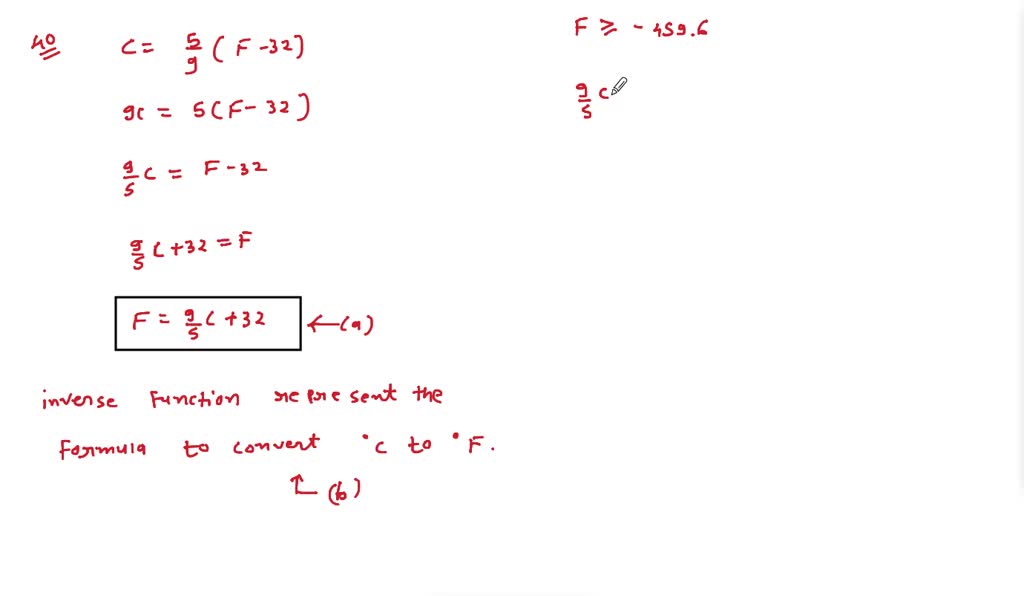 40 C = 5/9 (F - 32)
9C = 5(F - 32)
9/5 C = F - 32
9/5 C + 32 = F
F = 9/5 C + 32 ← (a)
inverse function represent the
formula to convert °C to °F.
↑ (b)
F ≥ - 459.6
9/5 C